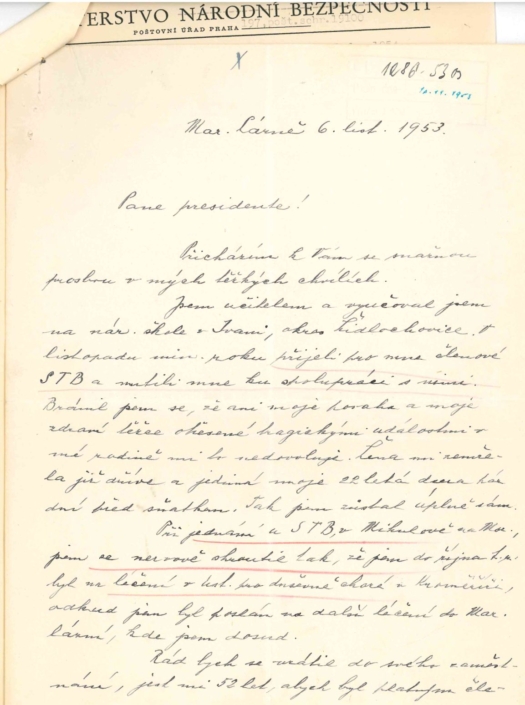 ERSTVO NÁRODNÍ BEZPEČNOSTI
POŠTOVNÍ ÚŘAD PRAHA
X
1088-53
10.11.1953
Mar. Lázně 6. list. 1953.
Pane presidente!
Přicházím k Vám se snažnou
prosbou v mých těžkých chvílích.
Jsem učitelem a vyučoval jsem
na nár. škole v Ivani, okres Židlochovice. V
listopadu min. roku přijeli pro mne členové
STB a nutili mne ku spolupráci s nimi.
Bránil jsem se, že ani moje povaha a moje
zdraví těžce otřesené tragickými událostmi v
mé rodině mi to nedovolují. Žena mi zemře-
la již dříve a jediná moje 22 letá dcera pár
dní před sňatkem. Tak jsem zůstal úplně sám.
Při jednání u STB, v Mikulově na Mor.,
jsem se nervově zhroutil tak, že jsem do října t.r.
byl na léčení v úst. pro duševně choré v Kroměříži,
odkud jsem byl poslán na další léčení do Mar.
Lázní, kde jsem dosud.
Rád bych se vrátil do svého zaměst-
nání, jest mi 52 let, abych byl platným čle-